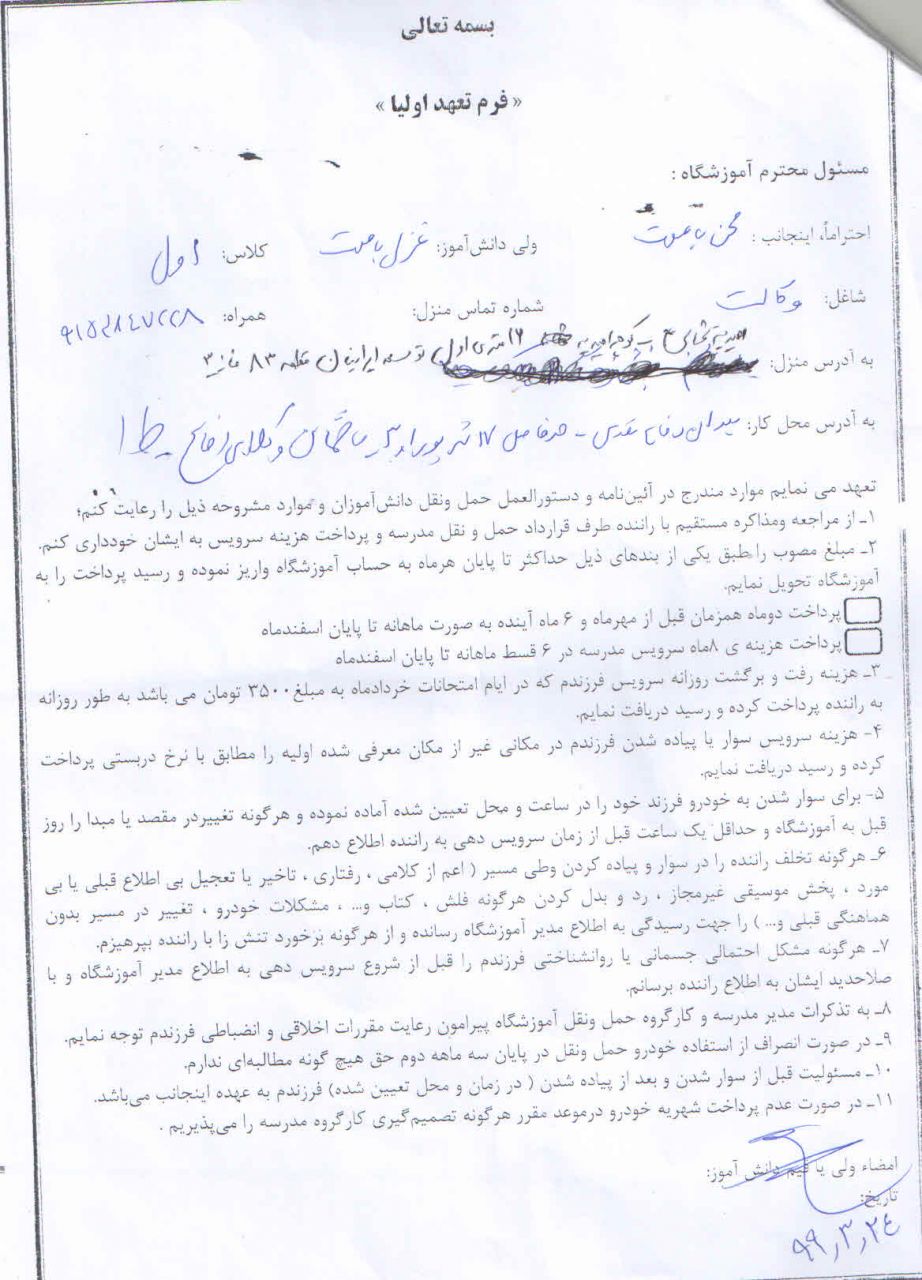 بسمه تعالی
« فرم تعهد اولیا »
مسئول محترم آموزشگاه :
احتراماً، اینجانب : ولی دانش‌آموز: غزل کلاس: اول
شاغل: وکالت شماره تماس منزل: همراه:
به آدرس منزل: ۱۲ متری اول توسعه قطعه ۸۳
به آدرس محل کار: میدان دفاع مقدس - حدفاصل ۱۷ ساختمان وکلای دفاع - ط ۱
تعهد می نمایم موارد مندرج در آئین‌نامه و دستورالعمل حمل ونقل دانش‌آموزان و موارد مشروحه ذیل را رعایت کنم؛
۱ـ از مراجعه ومذاکره مستقیم با راننده طرف قرارداد حمل و نقل مدرسه و پرداخت هزینه سرویس به ایشان خودداری کنم.
۲ـ مبلغ مصوب را طبق یکی از بندهای ذیل حداکثر تا پایان هرماه به حساب آموزشگاه واریز نموده و رسید پرداخت را به
آموزشگاه تحویل نمایم.
پرداخت دوماه همزمان قبل از مهرماه و ۶ ماه آینده به صورت ماهانه تا پایان اسفندماه
پرداخت هزینه ی ۸ماه سرویس مدرسه در ۶ قسط ماهانه تا پایان اسفندماه
۳ـ هزینه رفت و برگشت روزانه سرویس فرزندم که در ایام امتحانات خردادماه به مبلغ۳۵۰۰ تومان می باشد به طور روزانه
به راننده پرداخت کرده و رسید دریافت نمایم.
۴- هزینه سرویس سوار یا پیاده شدن فرزندم در مکانی غیر از مکان معرفی شده اولیه را مطابق با نرخ دربستی پرداخت
کرده و رسید دریافت نمایم.
۵- برای سوار شدن به خودرو فرزند خود را در ساعت و محل تعیین شده آماده نموده و هرگونه تغییردر مقصد یا مبدا را روز
قبل به آموزشگاه و حداقل یک ساعت قبل از زمان سرویس دهی به راننده اطلاع دهم.
۶ـ هرگونه تخلف راننده را در سوار و پیاده کردن وطی مسیر ( اعم از کلامی ، رفتاری ، تاخیر یا تعجیل بی اطلاع قبلی یا بی
مورد ، پخش موسیقی غیرمجاز ، رد و بدل کردن هرگونه فلش ، کتاب و... ، مشکلات خودرو ، تغییر در مسیر بدون
هماهنگی قبلی و... ) را جهت رسیدگی به اطلاع مدیر آموزشگاه رسانده و از هرگونه برخورد تنش زا با راننده بپرهیزم.
۷ـ هرگونه مشکل احتمالی جسمانی یا روانشناختی فرزندم را قبل از شروع سرویس دهی به اطلاع مدیر آموزشگاه و با
صلاحدید ایشان به اطلاع راننده برسانم.
۸ـ به تذکرات مدیر مدرسه و کارگروه حمل ونقل آموزشگاه پیرامون رعایت مقررات اخلاقی و انضباطی فرزندم توجه نمایم.
۹ـ در صورت انصراف از استفاده خودرو حمل ونقل در پایان سه ماهه دوم حق هیچ گونه مطالبه‌ای ندارم.
۱۰ـ مسئولیت قبل از سوار شدن و بعد از پیاده شدن ( در زمان و محل تعیین شده) فرزندم به عهده اینجانب می‌باشد.
۱۱ـ در صورت عدم پرداخت شهریه خودرو درموعد مقرر هرگونه تصمیم‌گیری کارگروه مدرسه را می‌پذیریم .
امضاء ولی یا قیم دانش آموز:
تاریخ:
۹۹,۳,۲۴